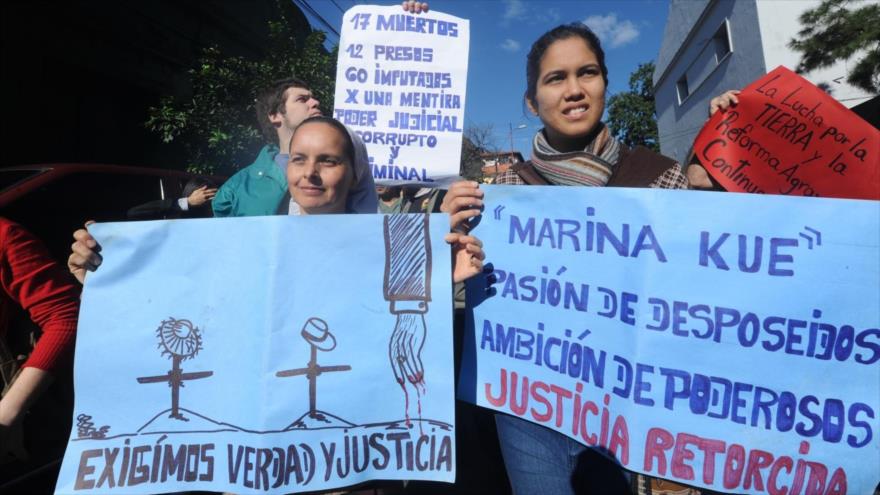 17 MUERTOS
12 PRESOS
60 IMPUTADOS
X UNA MENTIRA
PODER JUDICIAL
CORRUPTO
Y
CRIMINAL
La Lucha por la
TIERRA y la
Reforma Agraria
Continua
"MARINA KUE"
PASIÓN DE DESPOSEIDOS
AMBICIÓN DE PODEROSOS
JUSTICIA RETORCIDA
EXIGÍMOS VERDAD Y JUSTICIA